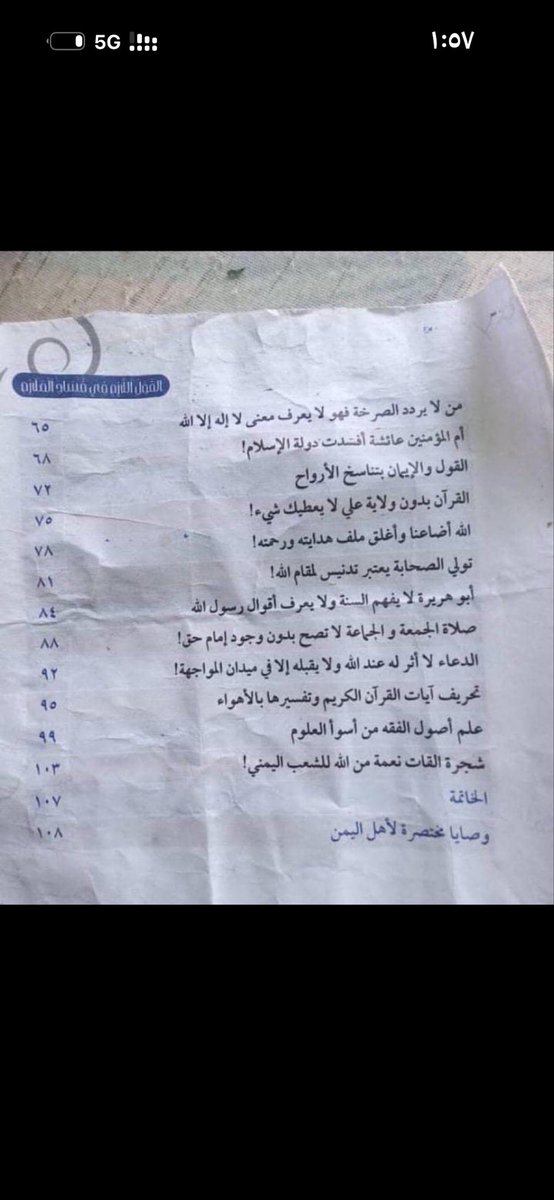 5G
١:٥٧
القول اللازم في فساد الملازم
من لا يردد الصرخة فهو لا يعرف معنى لا إله إلا الله ٦٥
أم المؤمنين عائشة أفسدت دولة الإسلام! ٦٨
القول والإيمان بتناسخ الأرواح ٧٢
القرآن بدون ولاية علي لا يعطيك شيء! ٧٥
الله أضاعنا وأغلق ملف هدايته ورحمته! ٧٨
تولي الصحابة يعتبر تدنيس لمقام الله! ٨١
أبو هريرة لا يفهم السنة ولا يعرف أقوال رسول الله ٨٤
صلاة الجمعة و الجماعة لا تصح بدون وجود إمام حق! ٨٨
الدعاء لا أثر له عند الله ولا يقبله إلا في ميدان المواجهة! ٩٢
تحريف آيات القرآن الكريم وتفسيرها بالأهواء ٩٥
علم أصول الفقه من أسوأ العلوم ٩٩
شجرة القات نعمة من الله للشعب اليمني! ١٠٣
الخاتمة ١٠٧
وصايا مختصرة لأهل اليمن ١٠٨